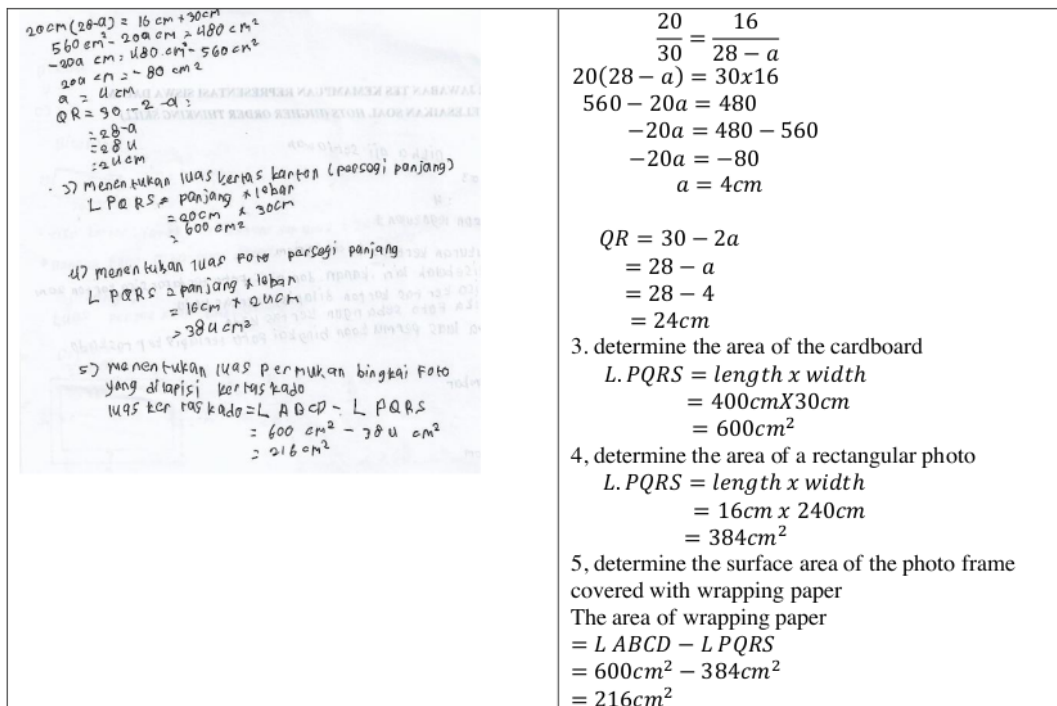 20cm (28-a) = 16 cm + 30cm
560 cm² - 20a cm = 480 cm²
-20a cm = 480 cm² - 560 cm²
20a cm = - 80 cm²
a = 4 cm
QR = 30 - 2 - a =
= 28-a
= 28 4
= 24cm
3) menentukan luas kertas karton (persegi panjang)
L PQRS = panjang x lebar
= 20cm x 30cm
= 600 cm²
4) menentukan luas Foto persegi panjang
L PQRS = panjang x lebar
= 16cm x 24cm
= 384 cm²
5) menentukan luas permukan bingkai Foto
yang dilapisi kertas kado
luas kertas kado = L ABCD - L PQRS
= 600 cm² - 384 cm²
= 216 cm²
20/30 = 16/(28 − a)
20(28 − a) = 30x16
560 − 20a = 480
−20a = 480 − 560
−20a = −80
a = 4cm
QR = 30 − 2a
= 28 − a
= 28 − 4
= 24cm
3. determine the area of the cardboard
L. PQRS = length x width
= 400cmX30cm
= 600cm²
4, determine the area of a rectangular photo
L. PQRS = length x width
= 16cm x 240cm
= 384cm²
5, determine the surface area of the photo frame
covered with wrapping paper
The area of wrapping paper
= L ABCD − L PQRS
= 600cm² − 384cm²
= 216cm²